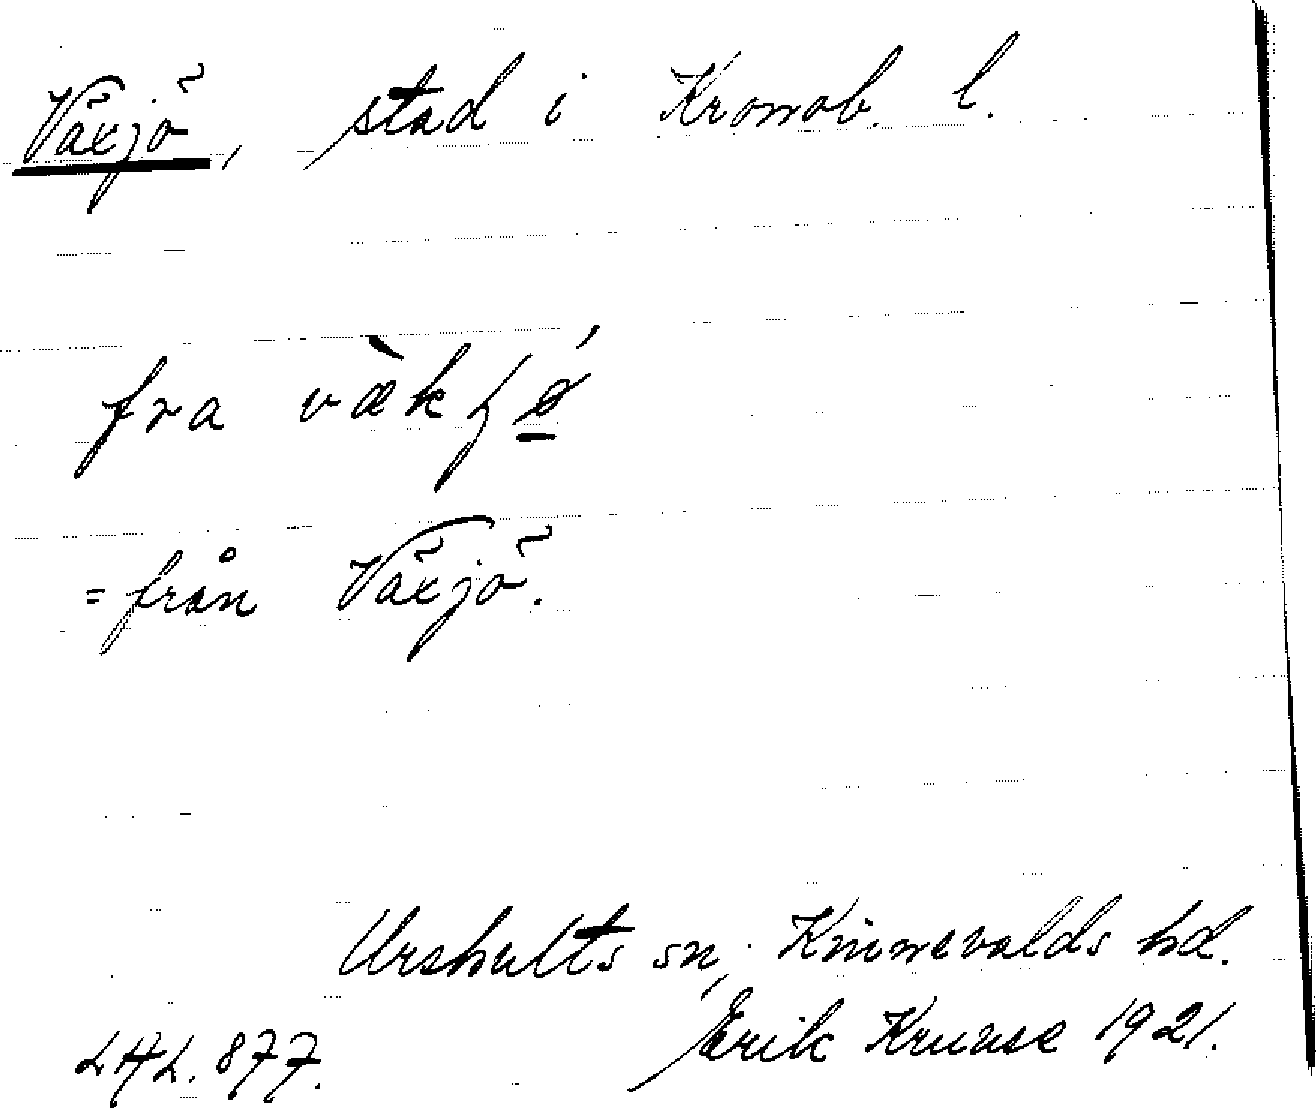 Växjö, stad i Kronob. l.
fra vækʃø
= från Växjö.
Urshults sn, Kinnevalds hd.
LAL. 877. Erik Kruuse 1921.